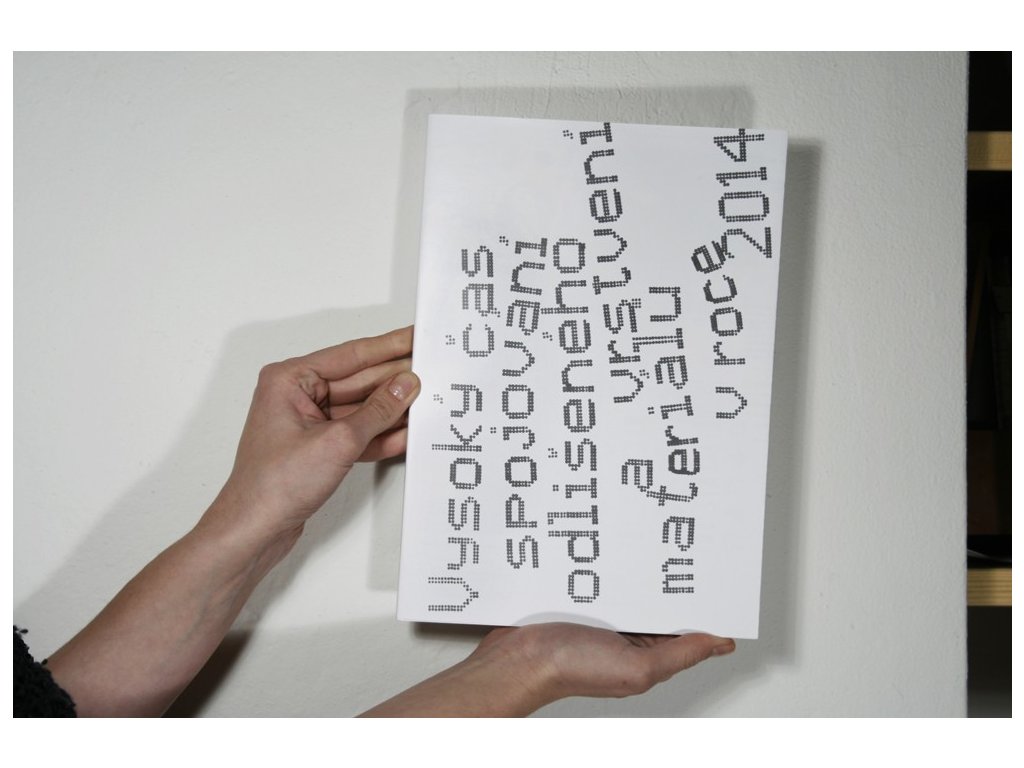 Vysoký čas
spojování
odlišeného
a vrstvení
materiálu
v roce 2014